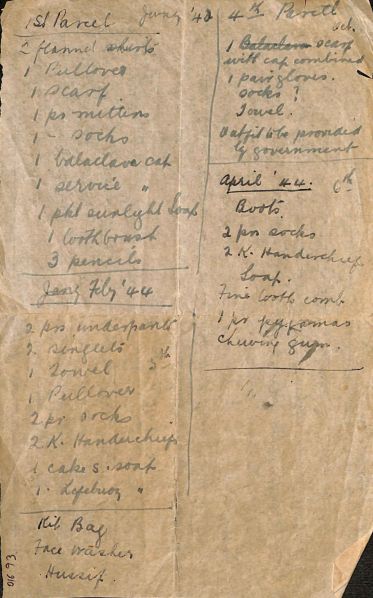 1st Parcel Jany '42
2 flannel shirts
1 Pullover
1 scarf
1 pr mittens
1 - socks
1 balaclava cap
1 service "
1 pkt sunlight Soap
1 toothbrush
3 pencils
Jany Feby '44
2 prs underpants
2 singlets
1 Towel 5th
1 Pullover
2 pr socks
2 K. Handerchiefs
1 cake s. soap
1 - Lifebuoy "
Kit Bag
Face Washer
Hussif.
016 93
4th Parcel
Oct.
1 Balaclava scarf
with cap combined
1 pair gloves.
socks ?
Towel.
Outfit to be provided
by government
April '44. 6th
Boots.
2 prs socks
2 K. Handerchiefs
Soap.
Fine tooth comb.
1 pr pyjamas
Chewing gum.